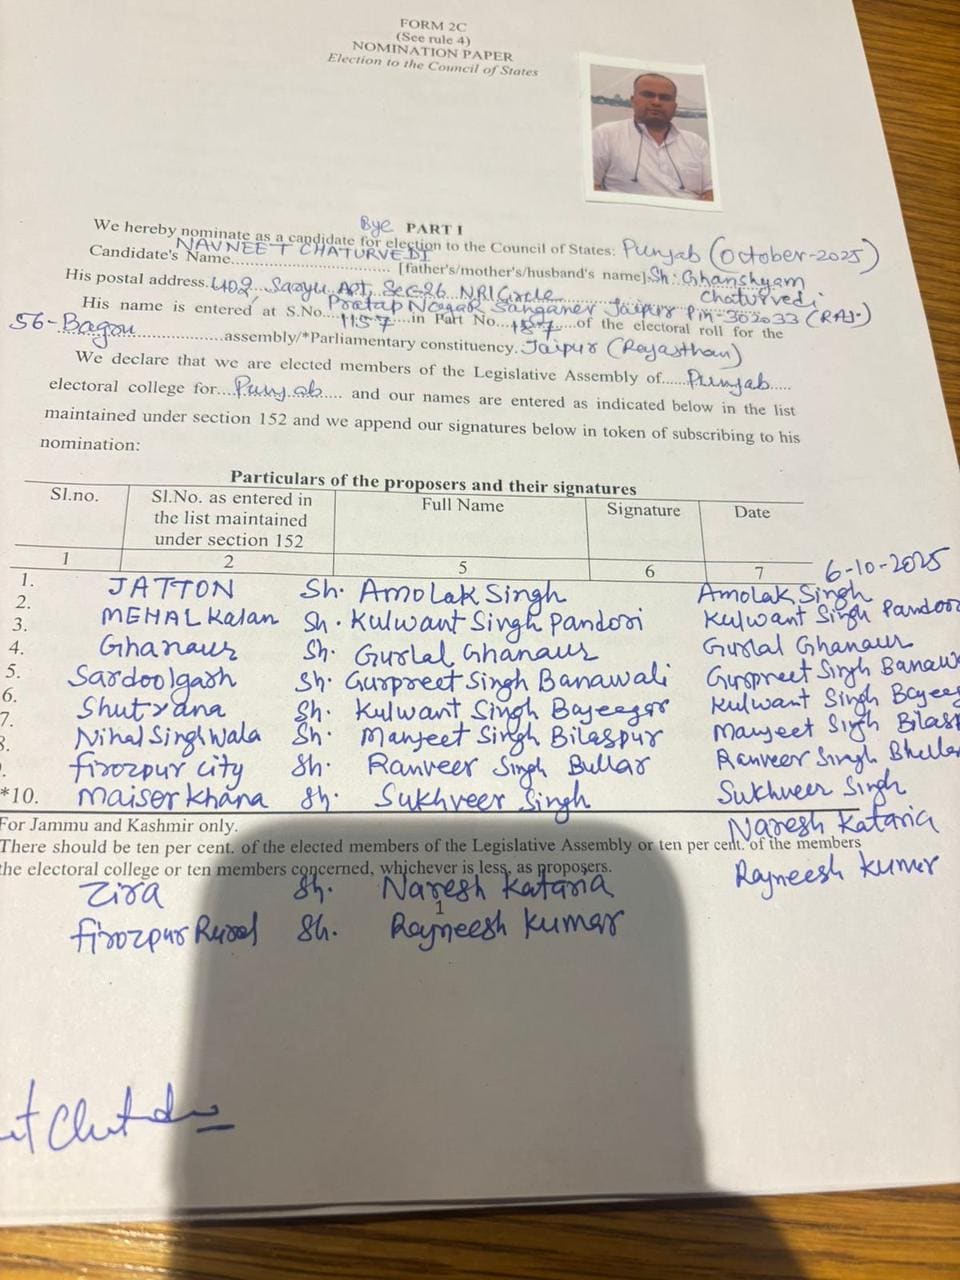 FORM 2C
(See rule 4)
NOMINATION PAPER
Election to the Council of States
Bye PART I
We hereby nominate as a candidate for election to the Council of States: Punjab (October-2025)
Candidate's Name NAVNEET CHATURVEDI [father's/mother's/husband's name] Sh. Ghanshyam Chaturvedi
His postal address. 402, Saryu Apt, Sec-26 NRI Circle
Pratap Nagar Sanganer Jaipur Pin-302033 (RAJ.)
His name is entered at S.No. 1157 in Part No. 187 of the electoral roll for the
56-Bagru assembly/*Parliamentary constituency. Jaipur (Rajasthan)
We declare that we are elected members of the Legislative Assembly of Punjab
electoral college for Punjab and our names are entered as indicated below in the list
maintained under section 152 and we append our signatures below in token of subscribing to his
nomination:
Particulars of the proposers and their signatures
Sl.no. Sl.No. as entered in the list maintained under section 152 Full Name Signature Date
1 2 5 6 7 6-10-2025
1. JATTON Sh. Amolak Singh Amolak Singh
2. MEHAL Kalan Sh. Kulwant Singh Pandori Kulwant Singh Pandori
3. Ghanaur Sh. Gurlal Ghanaur Gurlal Ghanaur
4. Sardoolgarh Sh. Gurpreet Singh Banawali Gurpreet Singh Banaw
5. Shutrana Sh. Kulwant Singh Bajeegar Kulwant Singh Bajeeg
6. Nihal Singh Wala Sh. Manjeet Singh Bilaspur Manjeet Singh Bilasp
7. firozpur city Sh. Ranveer Singh Bullar Ranveer Singh Bhullar
*10. Maiserkhana Sh. Sukhveer Singh Sukhveer Singh
For Jammu and Kashmir only.
Naresh Kataria
There should be ten per cent. of the elected members of the Legislative Assembly or ten per cent. of the members
the electoral college or ten members concerned, whichever is less, as proposers.
Zira Sh. Naresh Kataria Rajneesh Kumar
1
firozpur Rural Sh. Rajneesh Kumar